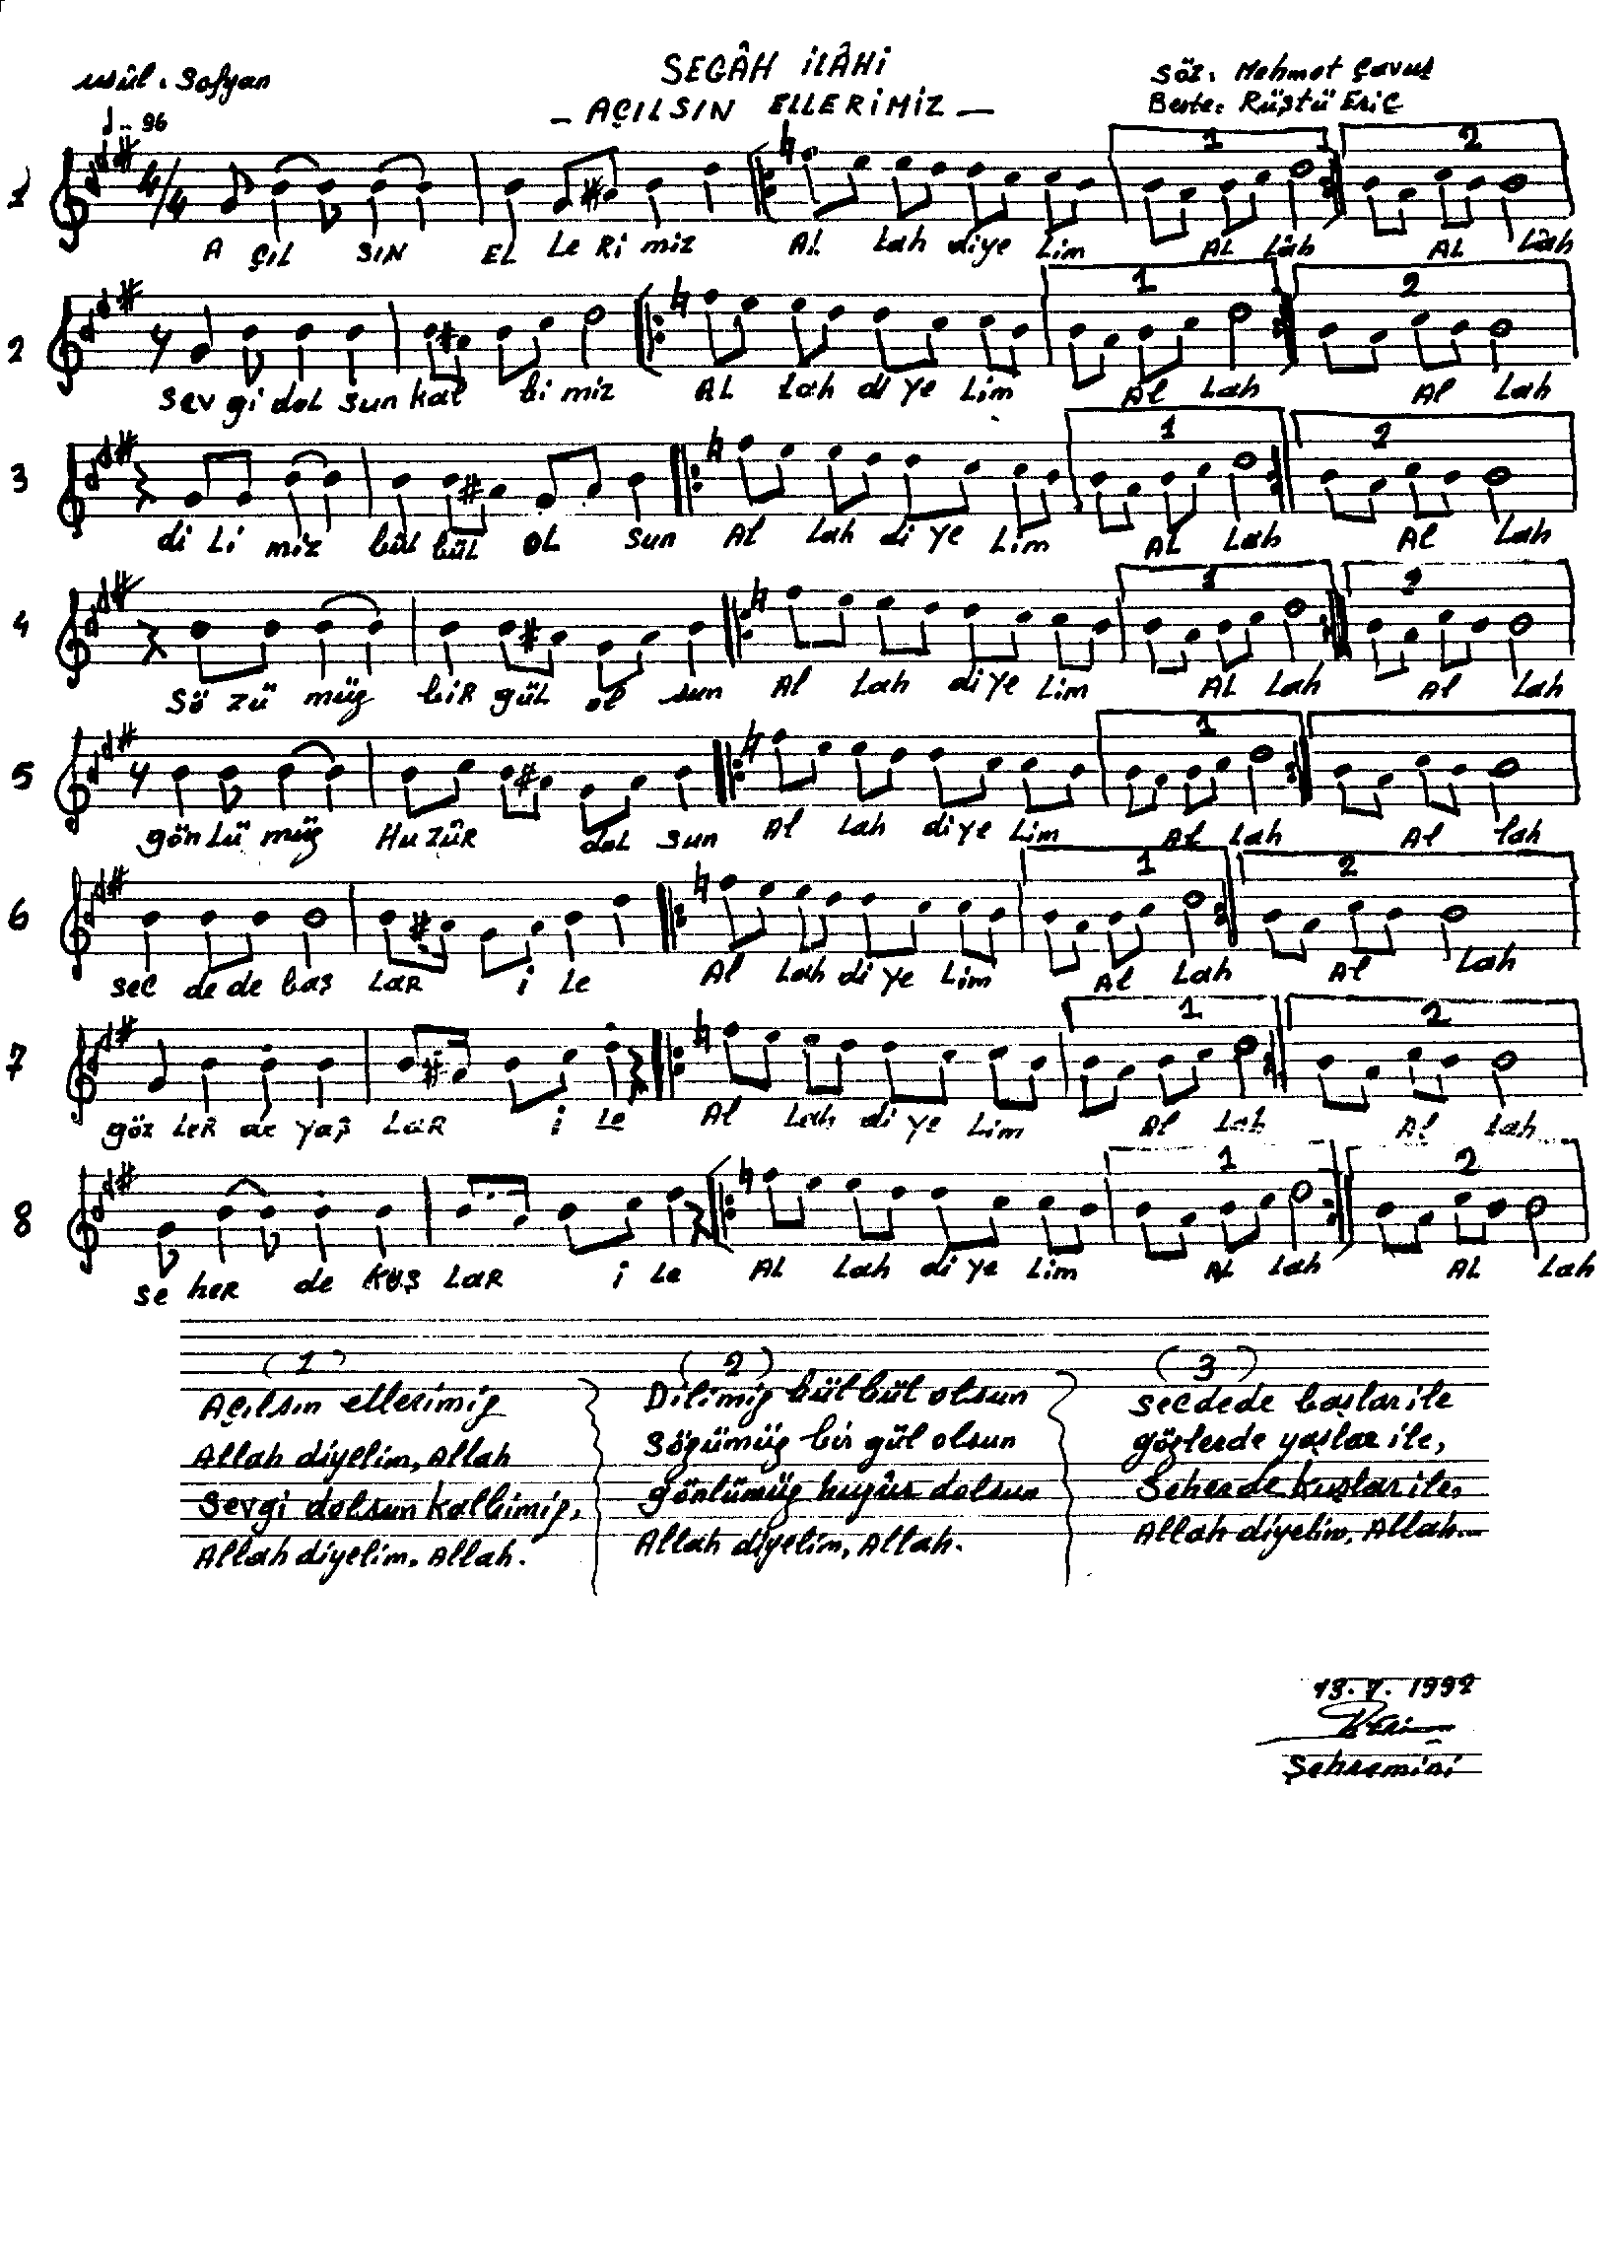 SEGÂH İLÂHİ
usûl. Sofyan
Söz. Mehmet Çavuş
- AÇILSIN ELLERİMİZ -
Beste. Rüştü Eriç
♩=96
4/4
1 2
1
A ÇIL SIN EL LE Rİ MİZ AL Lah diye Lim AL Lâh AL Lâh
1 2
2
Sev gi doL sun kal bi miz AL Lah di ye Lim Al Lah Al Lah
1 2
3
di Li miz bül bül OL sun Al Lah di ye Lim AL Lah Al Lah
1 2
4
Sö zü müz biR güL ol sun Al Lah di ye Lim AL Lah Al Lah
1
5
gön Lü müz Hu zûR doL sun Al Lah di ye Lim Al Lah Al lah
1 2
6
sec de de baş LaR i Le Al Lah di ye Lim Al Lah Al Lah
1 2
7
göz LeR de yaş LaR i Le Al Lah di ye Lim Al Lah Al Lah
1 2
8
se heR de KUŞ LaR i Le AL Lah di ye Lim AL Lah AL Lah
(1) (2) (3)
Açılsın ellerimiz
Allah diyelim, Allah
Sevgi dolsun kalbimiz,
Allah diyelim. Allah.
Dilimiz bülbül olsun
Sözümüz bir gül olsun
gönlümüz huzûr dolsun
Allah diyelim, Allah.
secdede başlar ile
gözlerde yaşlar ile,
Seherde kuşlar ile,
Allah diyelim, Allah...
13.7.1992
Şehremini